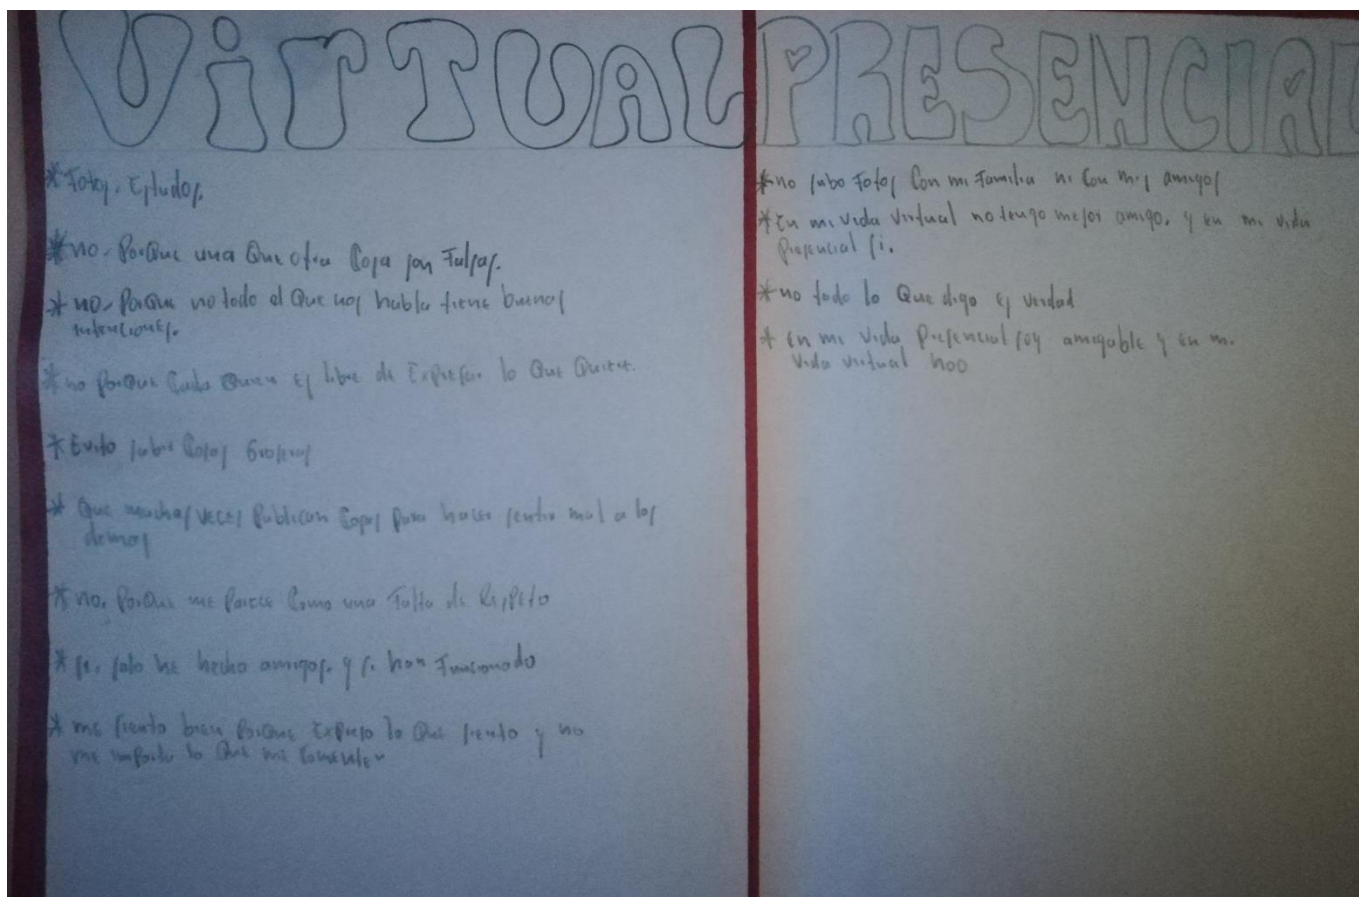 VirTUAL
* Fotos, Estados.
* no. PorQue una Que otra Cosa son Falsas.
* no. PorQue no todo el Que nos habla tiene buenas
intenciones.
* no PorQue Cada Quien es libre de Expresar lo Que Quiera.
* Evito subir Cosas
* Que muchas veces Publican Cosas para hacer sentir mal a los
demas
* no. PorQue me Parece Como una Falta de Respeto
* si. solo he hecho amigos. y si han Funcionado
* me siento bien PorQue Expreso lo Que siento y no
me importa lo Que me Comenten
PRESENCIAL
* no subo Fotos Con mi Familia ni Con mis amigos
* En mi vida virtual no tengo mejor amigo. y en mi vida
Presencial si.
* no todo lo Que digo es verdad
* En mi vida Presencial soy amigable y en mi
vida virtual noo